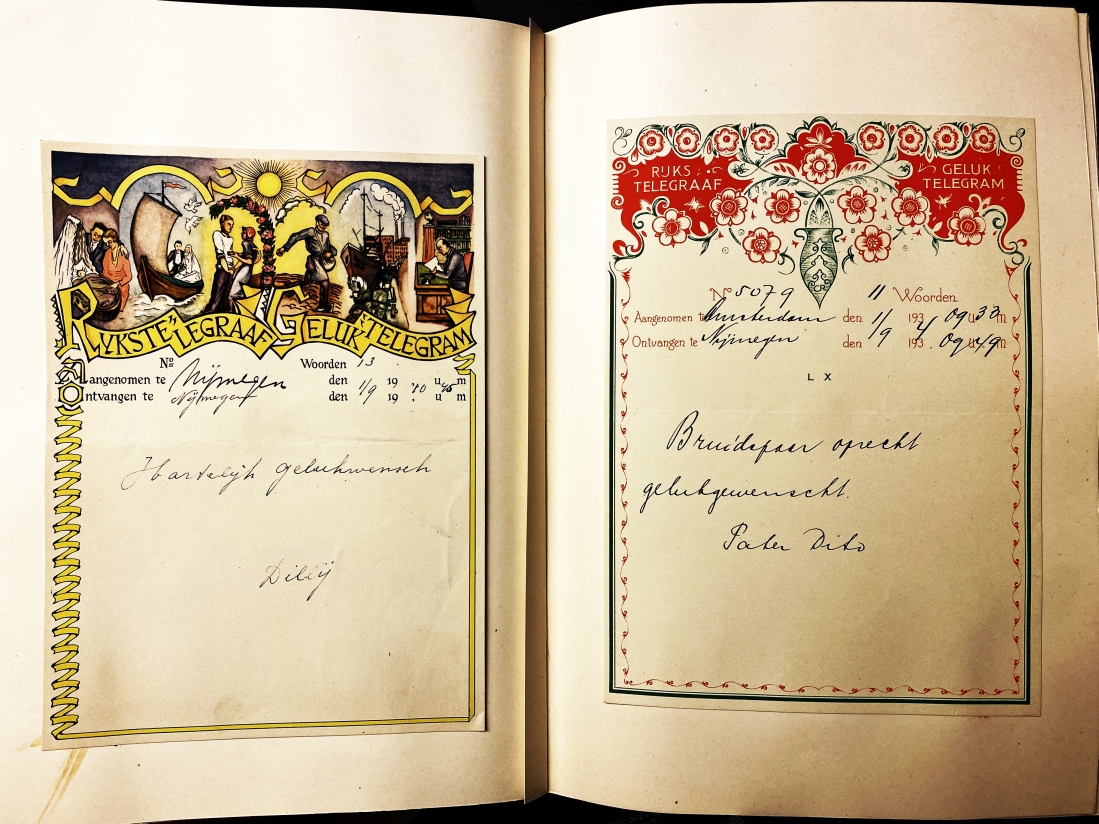 RYKSTELEGRAAF GELUKTELEGRAM
No Woorden 13
Aangenomen te Nijmegen den 1/9 19 10 45 u m
Ontvangen te Nijmegen den 19 u m
Hartelijk gelukwensch
Dilly
RIJKS TELEGRAAF
GELUK TELEGRAM
No 5079 11 Woorden
Aangenomen te Amsterdam den 1/9 1934 09 u 33 m
Ontvangen te Nijmegen den 1/9 193 09 u 49 m
L X
Bruidspaar oprecht
gelukgewenscht.
Pater Dito